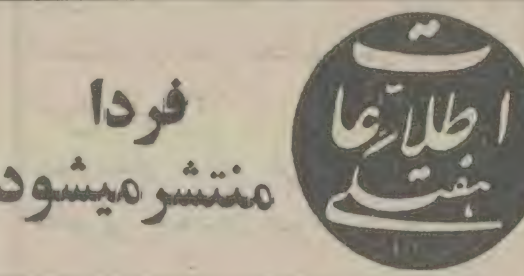 اطلاعات
هفتگی
فردا
منتشر میشود